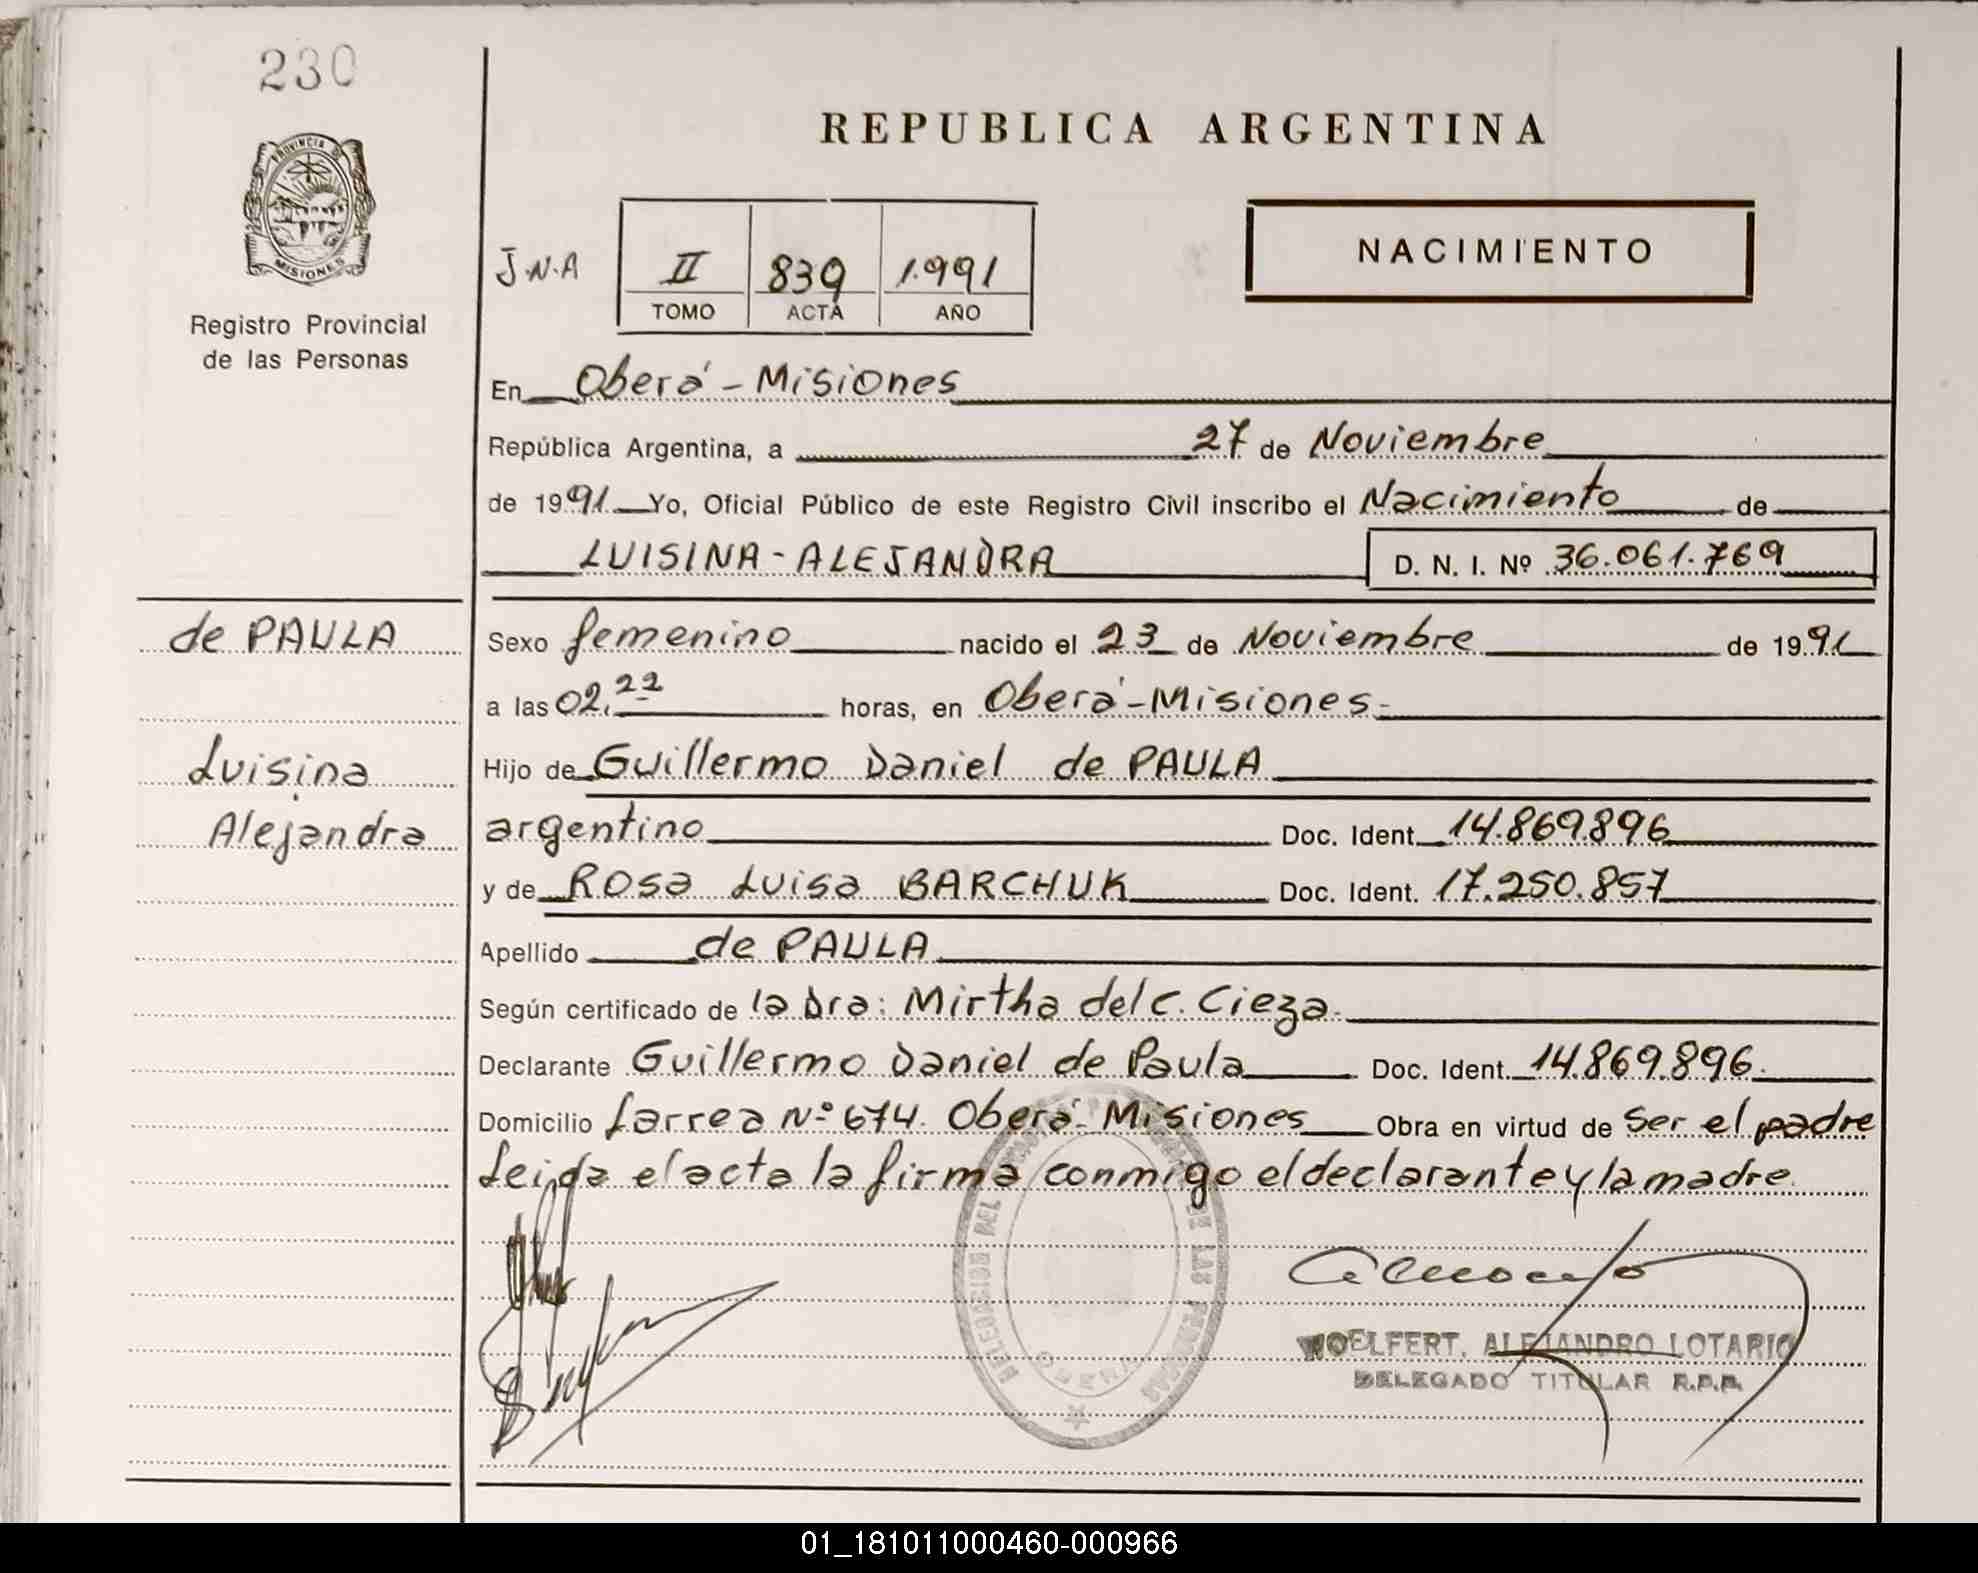 230
REPUBLICA ARGENTINA
PROVINCIA DE
MISIONES
Registro Provincial
de las Personas
J.N.A
II 839 1.991
TOMO ACTA AÑO
NACIMIENTO
En Oberá - Misiones
República Argentina, a 27 de Noviembre
de 1991 Yo, Oficial Público de este Registro Civil inscribo el Nacimiento de
LUISINA - ALEJANDRA D. N. I. Nº 36.061.769
de PAULA
Luisina
Alejandra
Sexo femenino nacido el 23 de Noviembre de 1991
a las 02.22 horas, en Oberá - Misiones -
Hijo de Guillermo Daniel de PAULA
argentino Doc. Ident. 14.869.896
y de Rosa Luisa BARCHUK Doc. Ident. 17.250.857
Apellido de PAULA
Según certificado de la Dra: Mirtha del C. Cieza.
Declarante Guillermo Daniel de Paula Doc. Ident. 14.869.896.
Domicilio Larrea Nº 674. Oberá - Misiones Obra en virtud de ser el padre
Leida el acta la firma conmigo el declarante y la madre.
DELEGACION DEL DE LAS PERSONAS
OBERA
WOELFERT, ALEJANDRO LOTARIO
DELEGADO TITULAR R.P.P.
01_181011000460-000966